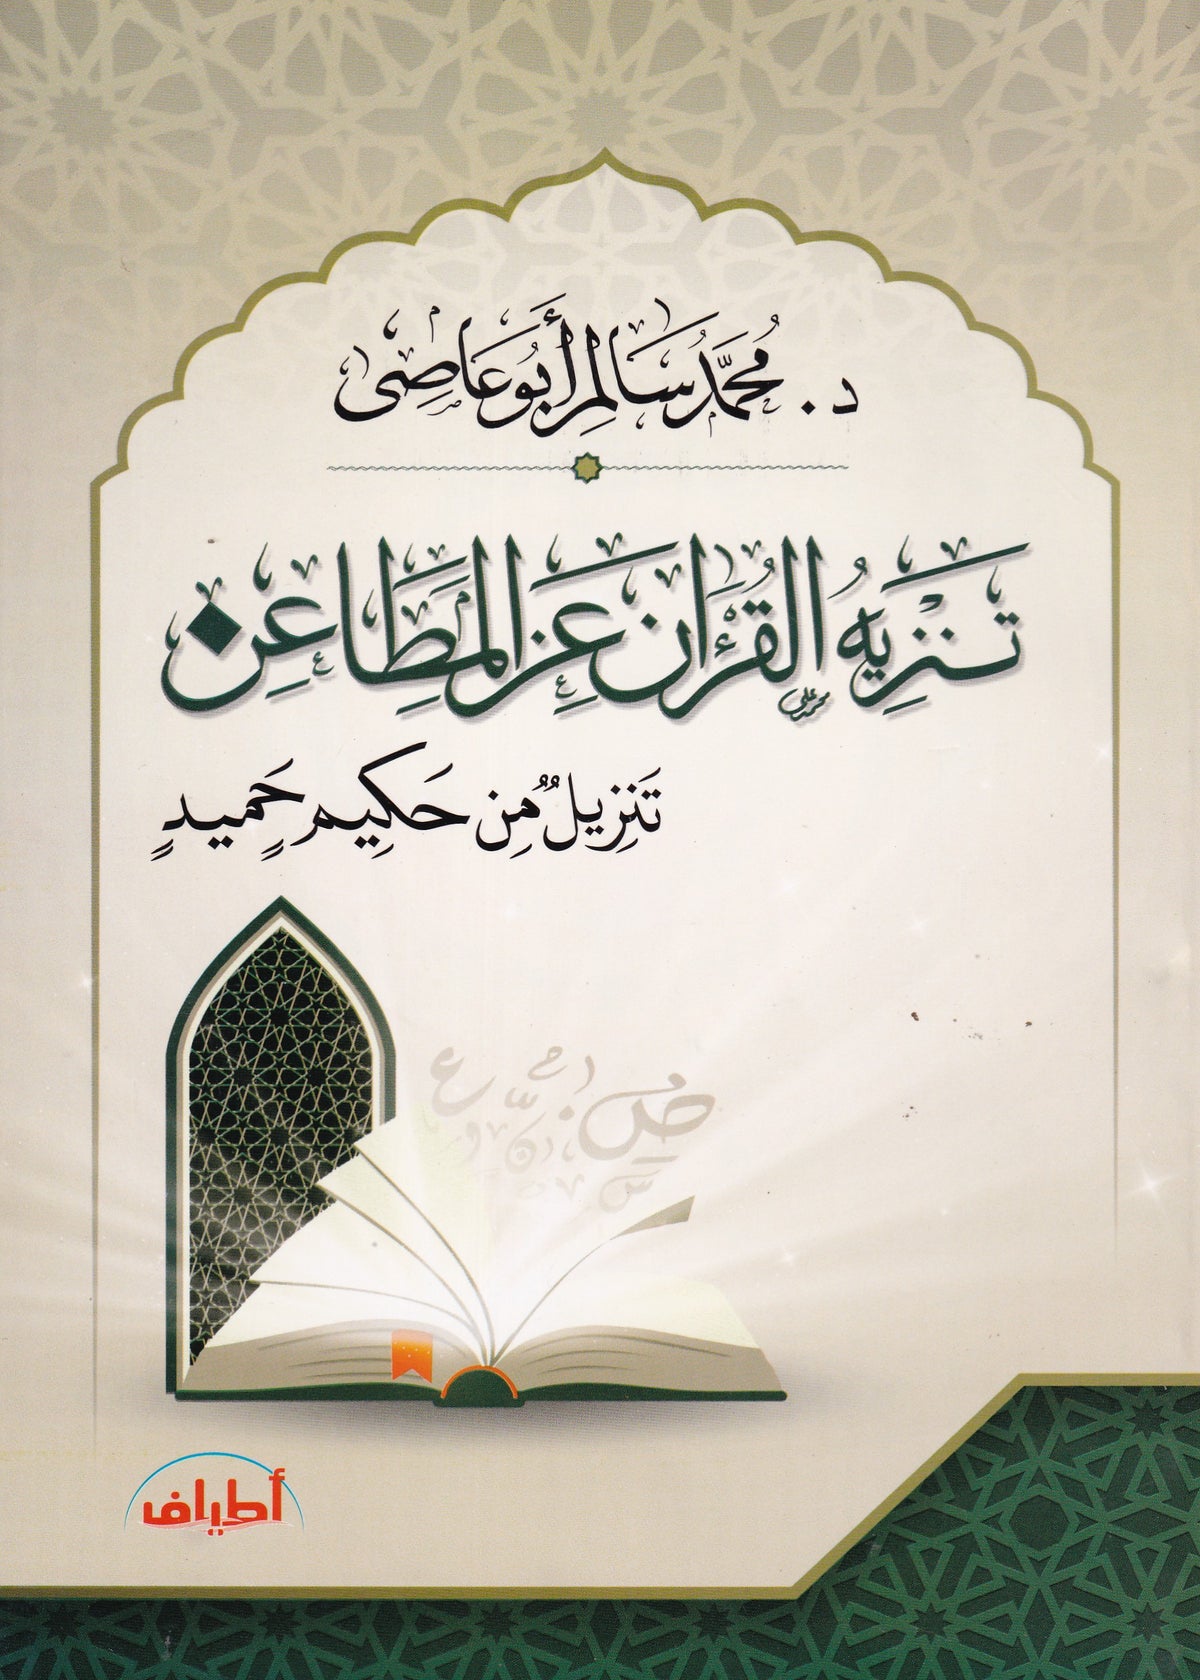 د. مُحَمَّد سَالِم أَبُو عَاصِي
تَنْزِيهُ القُرْآنِ عَنِ المَطَاعِنِ
محمد علي
تَنزِيلٌ مِن حَكِيمٍ حَمِيدٍ
أطياف